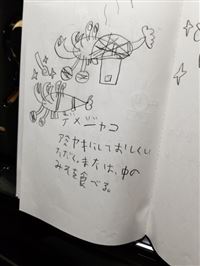 デメニャコ
アミヤキにしておいしくい
ただく。または、中の
みそを食べる。